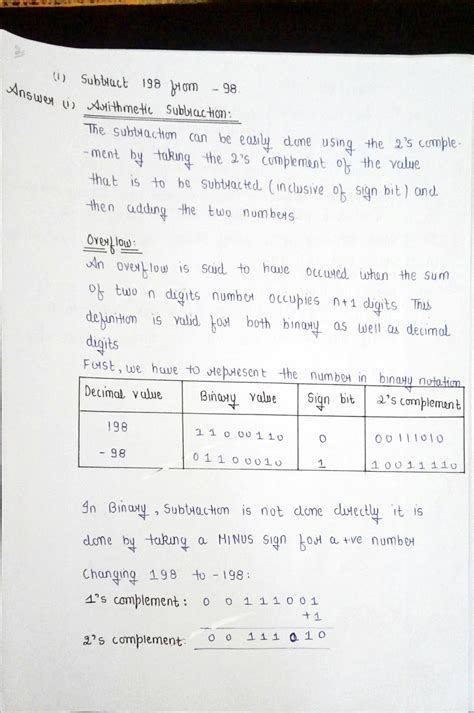 2.
(i) Subtract 198 from - 98.
Answer (i) Arithmetic Subtraction:
The subtraction can be easily done using the 2's comple-
-ment by taking the 2's complement of the value
that is to be subtracted (inclusive of sign bit) and
then adding the two numbers
Overflow:
An overflow is said to have occured when the sum
of two n digits number occupies n+1 digits This
definition is valid for both binary as well as decimal
digits
First, we have to represent the number in binary notation
Decimal value Binary value Sign bit 2's complement
198 11000110 0 00111010
- 98 01100010 1 10011110
In Binary, Subtraction is not done directly it is
done by taking a MINUS sign for a +ve number
Changing 198 to -198:
1's complement: 0 0 1 1 1 0 0 1
+1
2's complement: 0 0 1 1 1 0 1 0